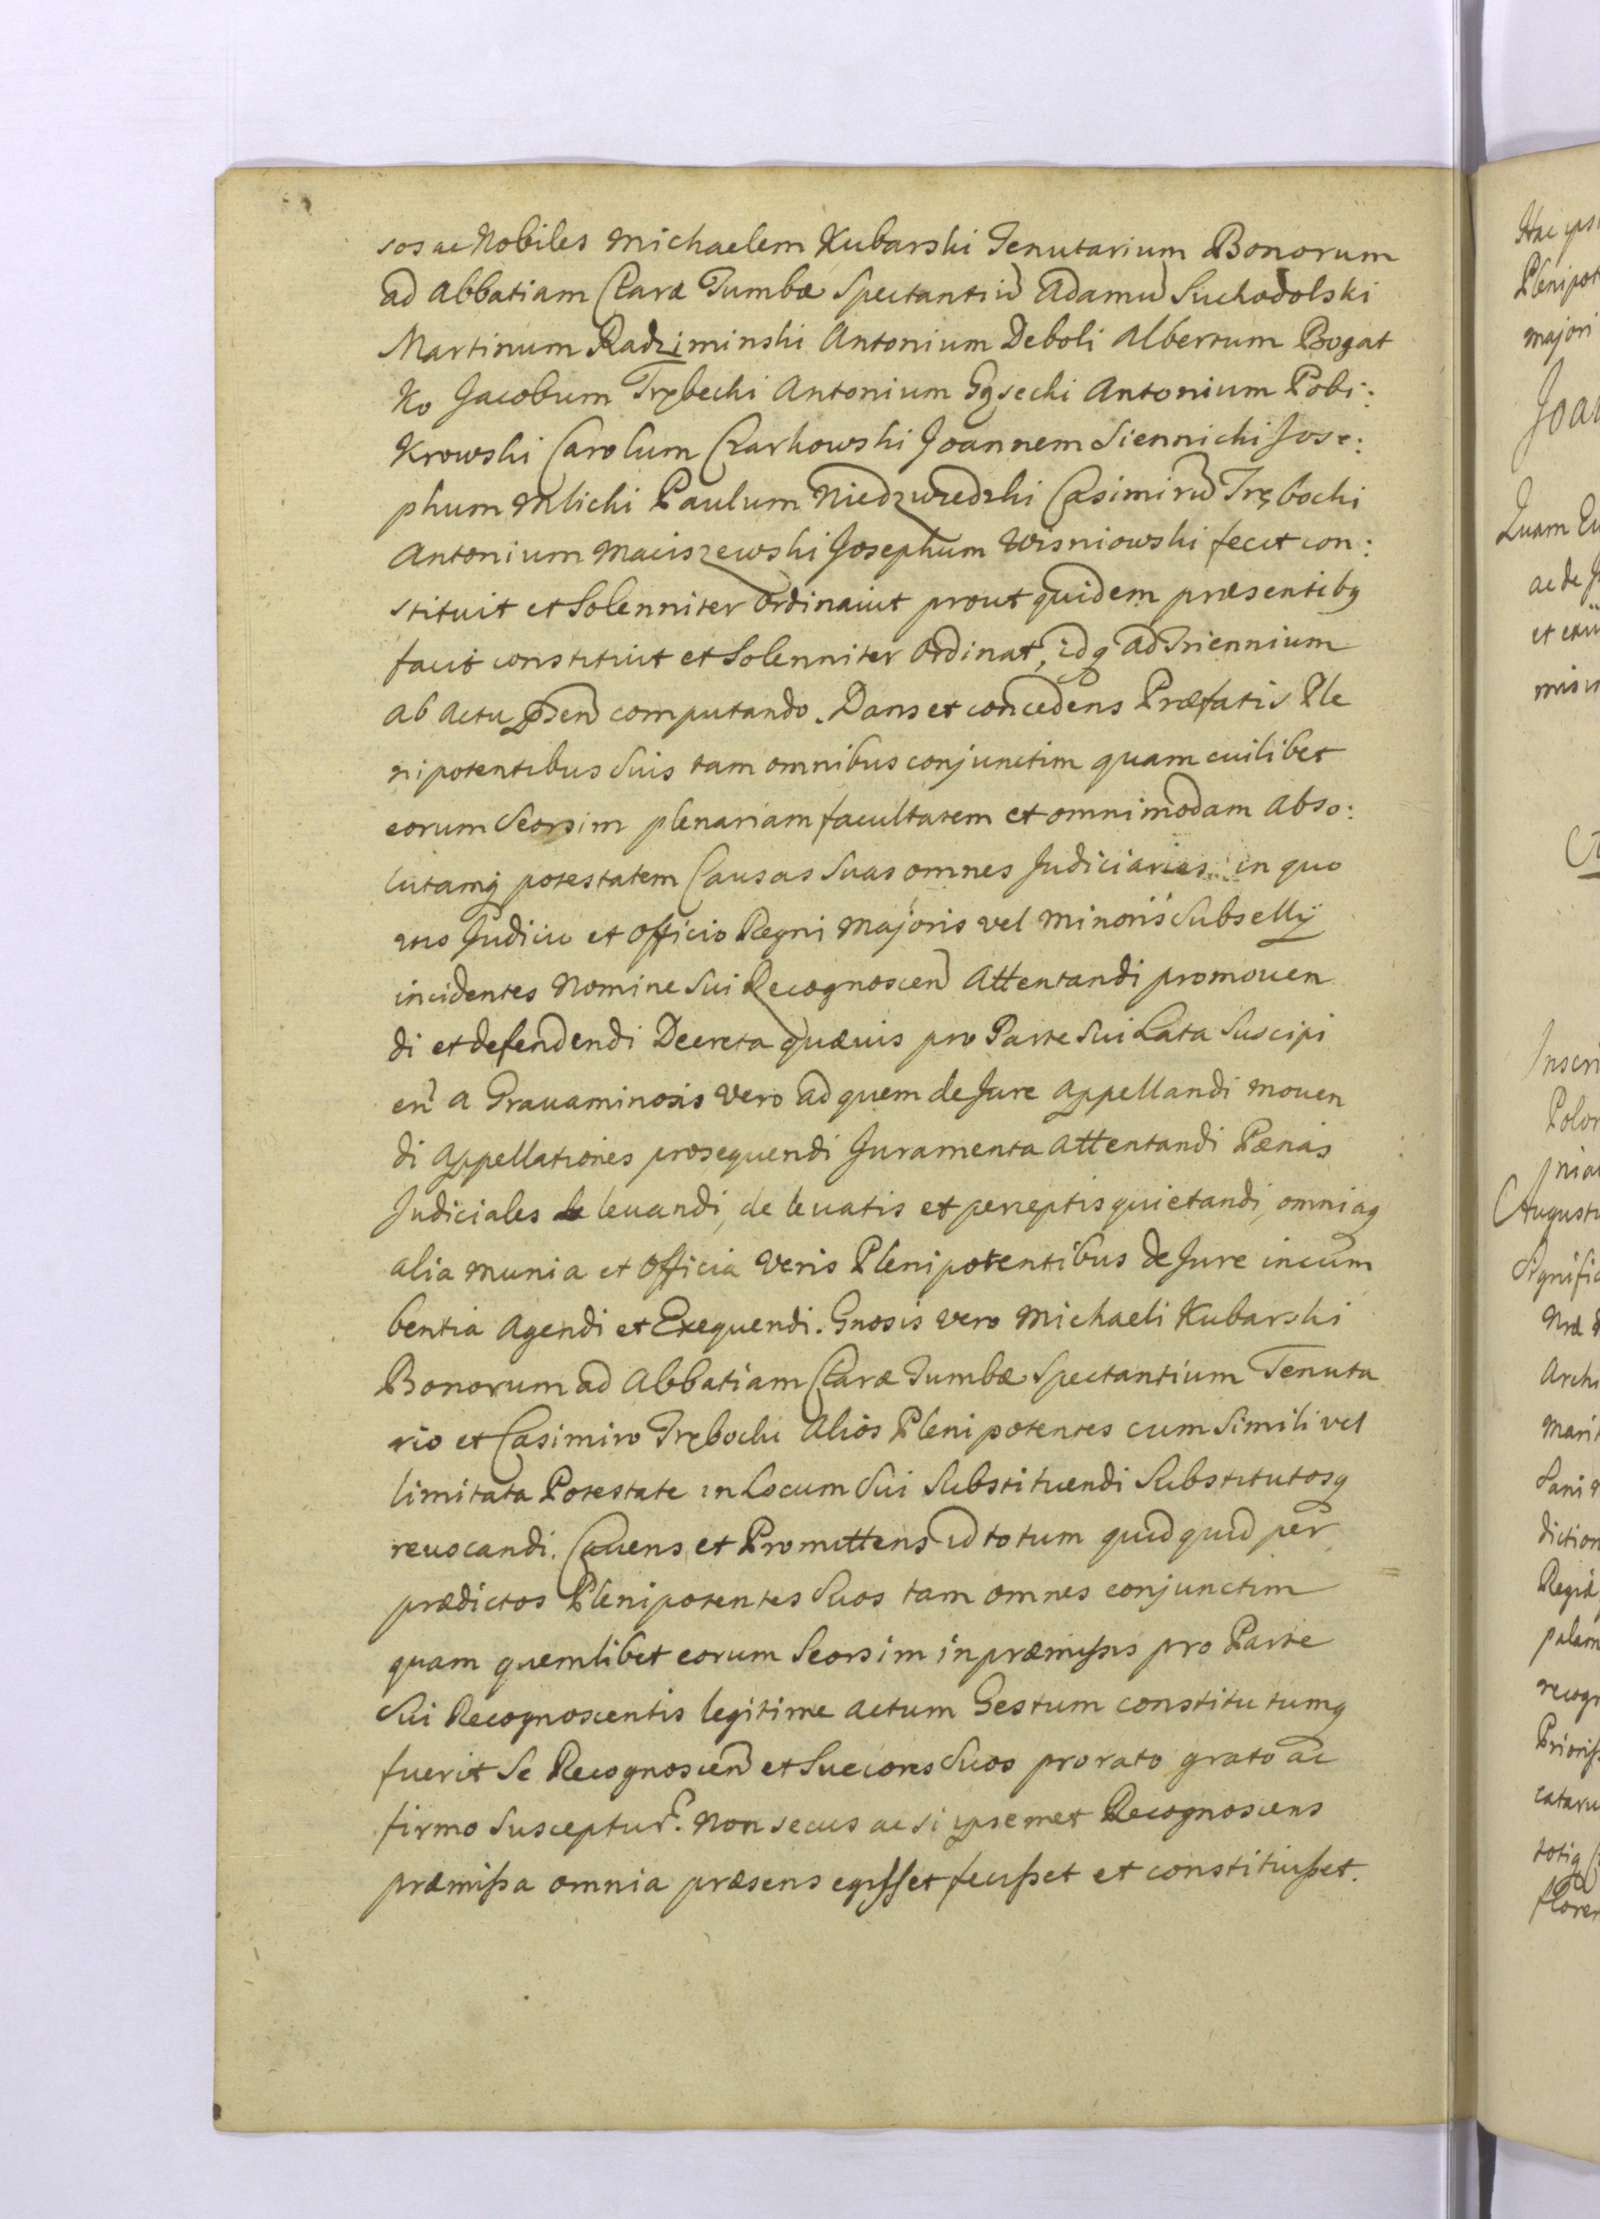 sos ac Nobiles Michaelem Kubarski Tenutarium Bonorum
ad Abbatiam Claræ Tumbæ Spectantiũ Adamũ Suchodolski
Martinum Radziminski Antonium Deboli Albertum Bogat
ko Jacobum Trębecki Antonium Gąsecki Antonium Pobi:
krowski Carolum Czarkowski Joannem Siennicki Jose:
phum Mlicki Paulum Niedzwiedzki Casimirũ Trębocki
Antonium Maciszewski Josephum Wisniowski fecit con:
stituit et Solenniter Ordinavit prout quidem præsentibq
facit constituit et Solenniter Ordinat, idq ad Triennium
ab actu præsen computando. Dans et concedens Præfatis Ple
nipotentibus Suis tam omnibus conjunctim quam cuilibet
eorum Seorsim plenariam facultatem et omnimodam abso:
lutamq potestatem Causas Suas omnes Judiciarias in quo
vis Judicio et Officio Regni Majoris vel Minoris Subsellij
incidentes Nomine Sui Recognoscen Attentandi promoven
di et defendendi Decreta quævis pro Parte Sui Lata Suscipi
en a Gravaminosis vero ad quem de Jure appellandi moven
di Appellationes prosequendi Juramenta attentandi Pænas
Judiciales levandi, de levatis et perceptis quietandi, omniaq
alia munia et Officia Veris Plenipotentibus de Jure incum
bentia Agendi et Exequendi. Gnosis vero Michaeli Kubarski
Bonorum ad Abbatiam Claræ Tumbæ Spectantium Tenuta
rio et Casimiro Trębocki Alios Plenipotentes cum Simili vel
limitata Potestate in Locum Sui Substituendi Substitutosq
revocandi. Cavens et Promittens id totum quidquid per
prædictos Plenipotentes Suos tam omnes conjunctim
quam quemlibet eorum Seorsim in præmissis pro Parte
Sui Recognoscentis legitime actum Gestum constitutumq
fuerit Se Recognoscen et Succores Suos pro rato grato ac
firmo Susceptur. Non secus ac si ipsemet Recognoscens
præmissa omnia præsens egisset fecisset et constituisset.